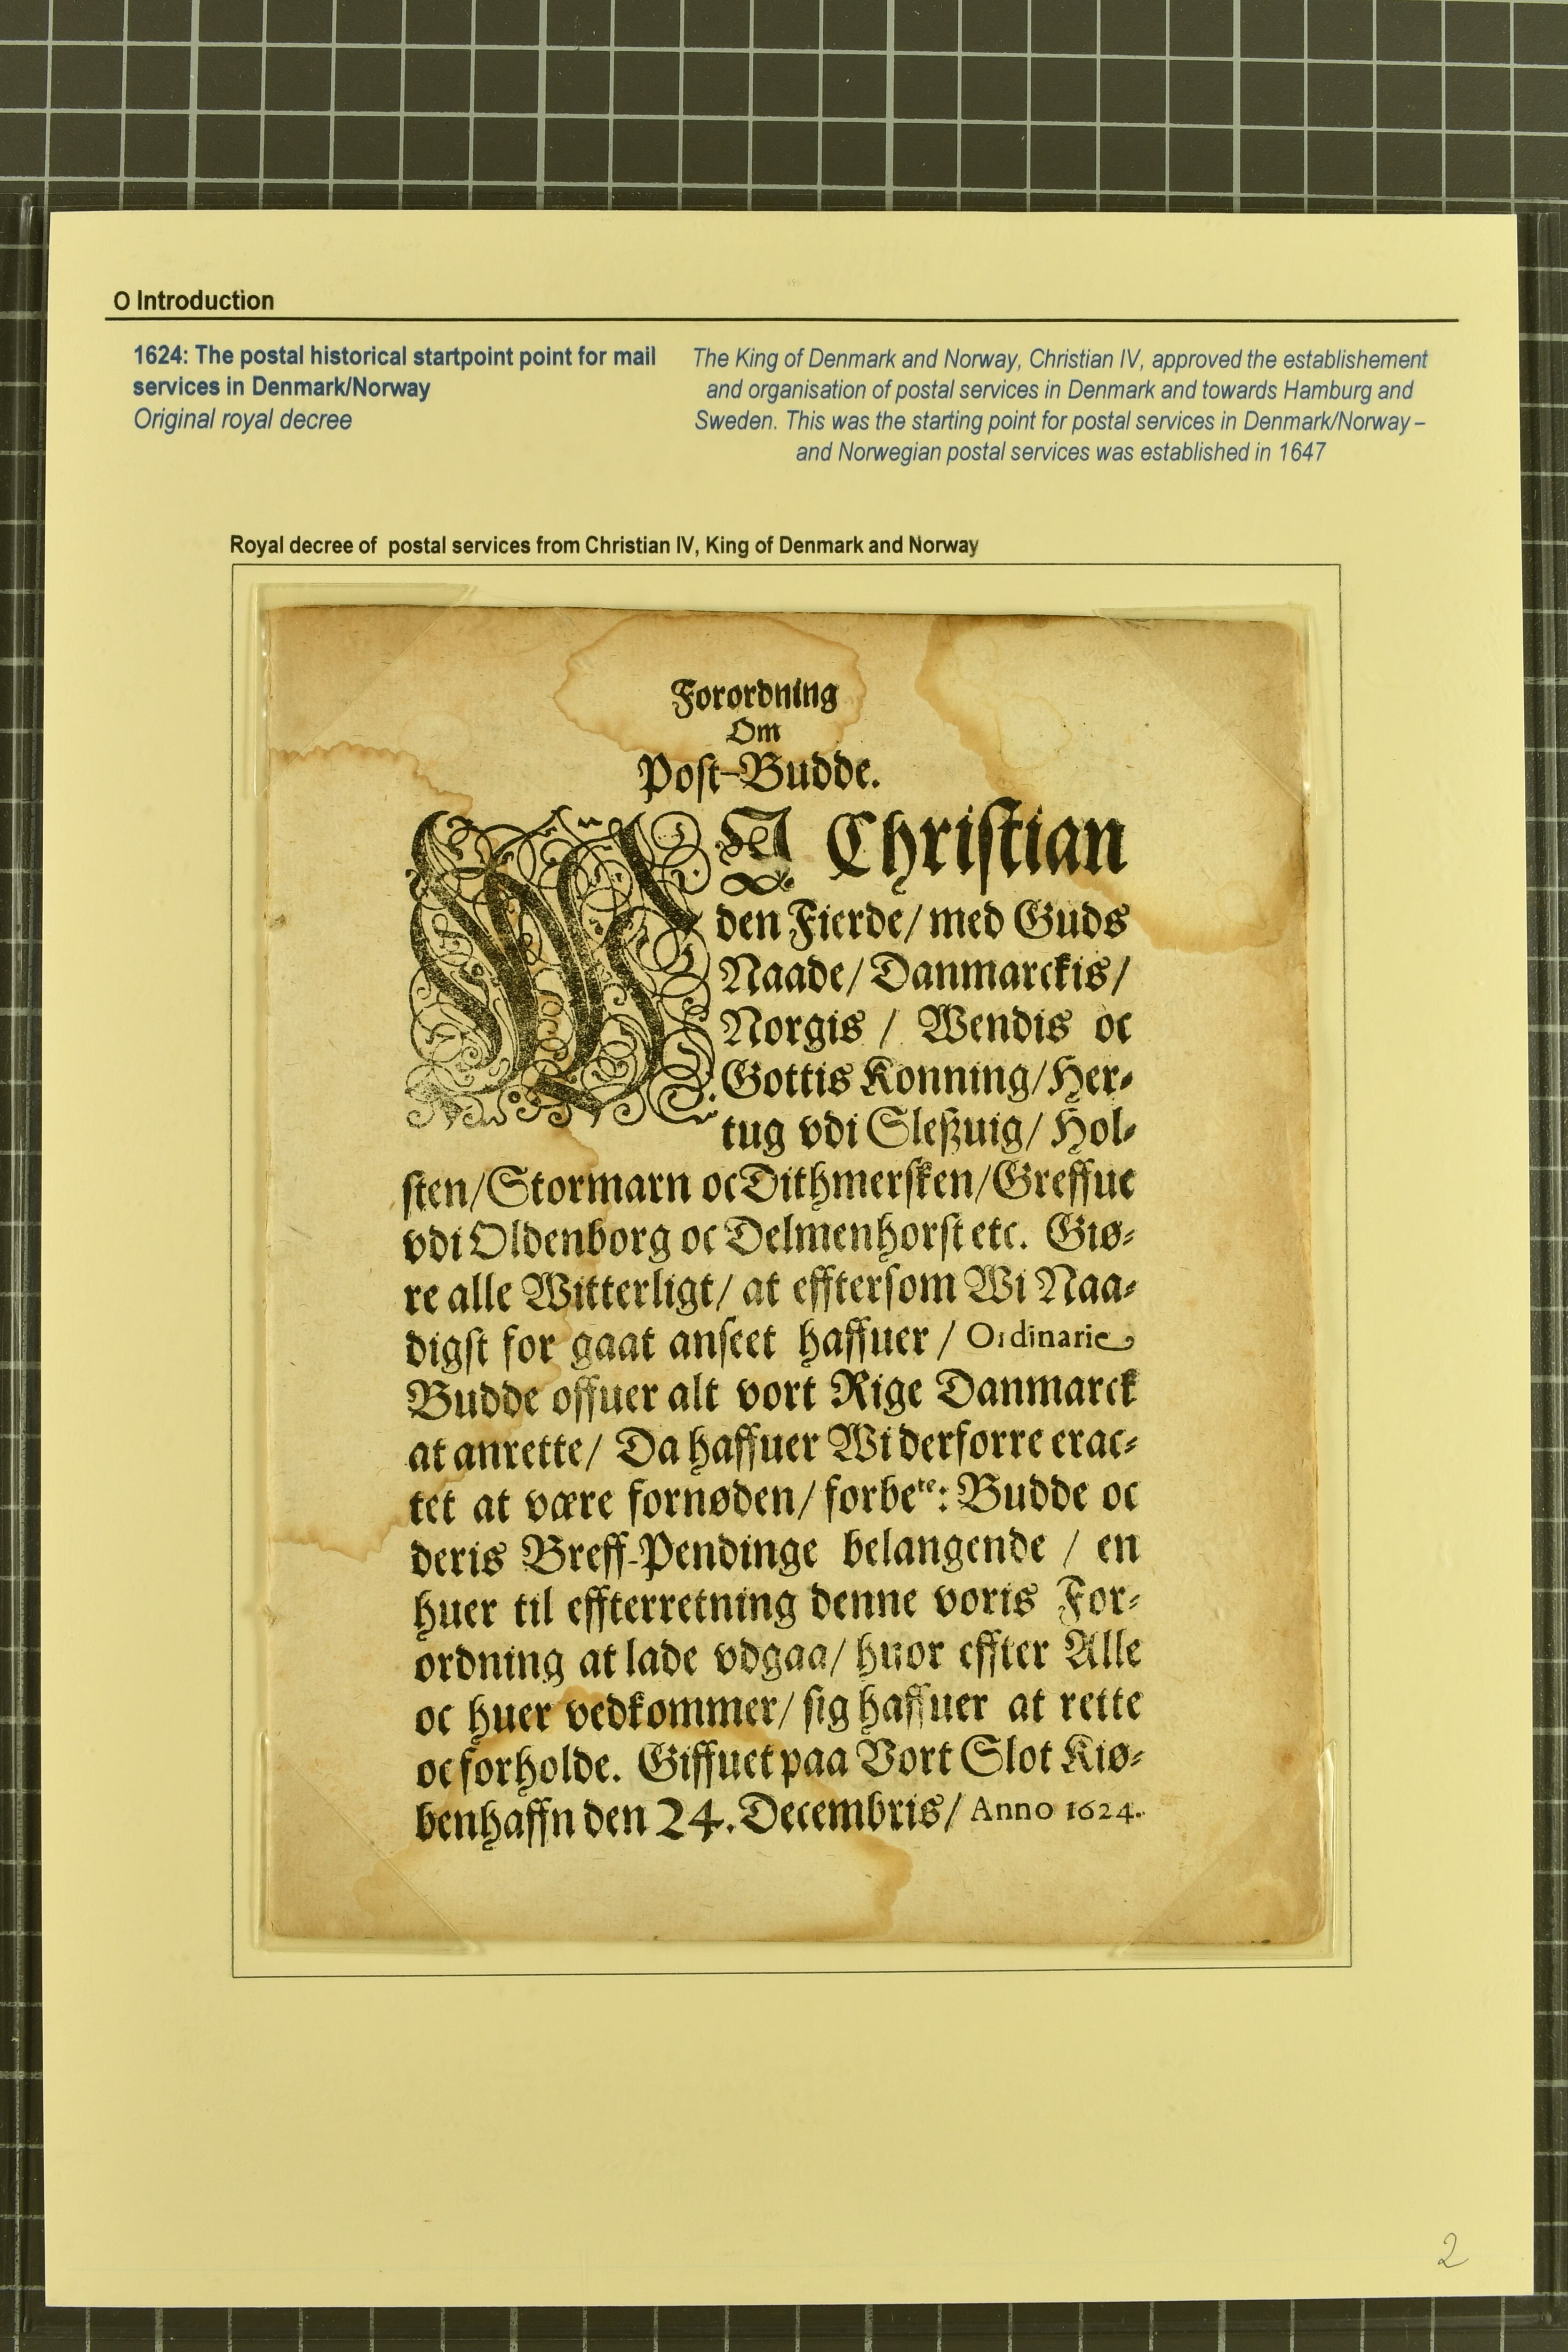 O Introduction
1624: The postal historical startpoint point for mail
services in Denmark/Norway
Original royal decree
The King of Denmark and Norway, Christian IV, approved the establishement
and organisation of postal services in Denmark and towards Hamburg and
Sweden. This was the starting point for postal services in Denmark/Norway –
and Norwegian postal services was established in 1647
Royal decree of postal services from Christian IV, King of Denmark and Norway
Forordning
Om
Post-Budde.
WJ Christian
den Fierde/ med Guds
Naade/ Danmarckis/
Norgis / Wendis oc
Gottis Konning/ Her-
tug vdi Sleßuig/ Hol-
sten/ Stormarn oc Dithmersken/ Greffue
vdi Oldenborg oc Delmenhorst etc. Giø-
re alle Witterligt/ at efftersom Wi Naa-
digst for gaat anseet haffuer / Ordinarie
Budde offuer alt vort Rige Danmarck
at anrette/ Da haffuer Wi derforre erac-
tet at være fornøden/ forbete: Budde oc
deris Breff-Pendinge belangende / en
huer til effterretning denne voris For-
ordning at lade vdgaa/ huor effter Alle
oc huer vedkommer/ sig haffuer at rette
oc forholde. Giffuet paa Vort Slot Kiø-
benhaffn den 24. Decembris/ Anno 1624.
2